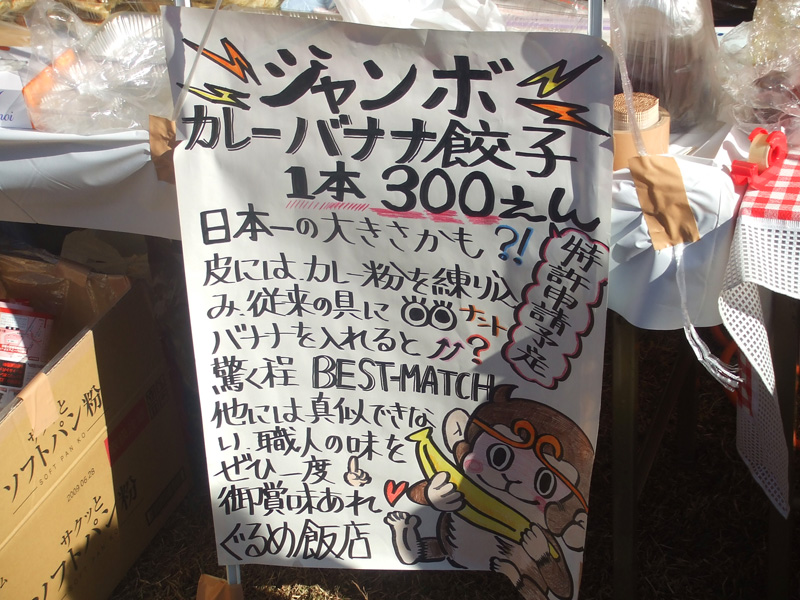 ジャンボ
カレーバナナ餃子
1本 300えん
日本一の大きさかも?!
特許申請予定
皮には、カレー粉を練り込
み、従来の具に ナント
バナナを入れると⤴⤴?
驚く程 BEST-MATCH
他には真似できな
い、職人の味を
ぜひ一度
御賞味あれ
ぐるめ飯店
サクッと
ソフトパン粉
SOFT PAN KO
2009.06.28
サクッと
ソフトパン粉